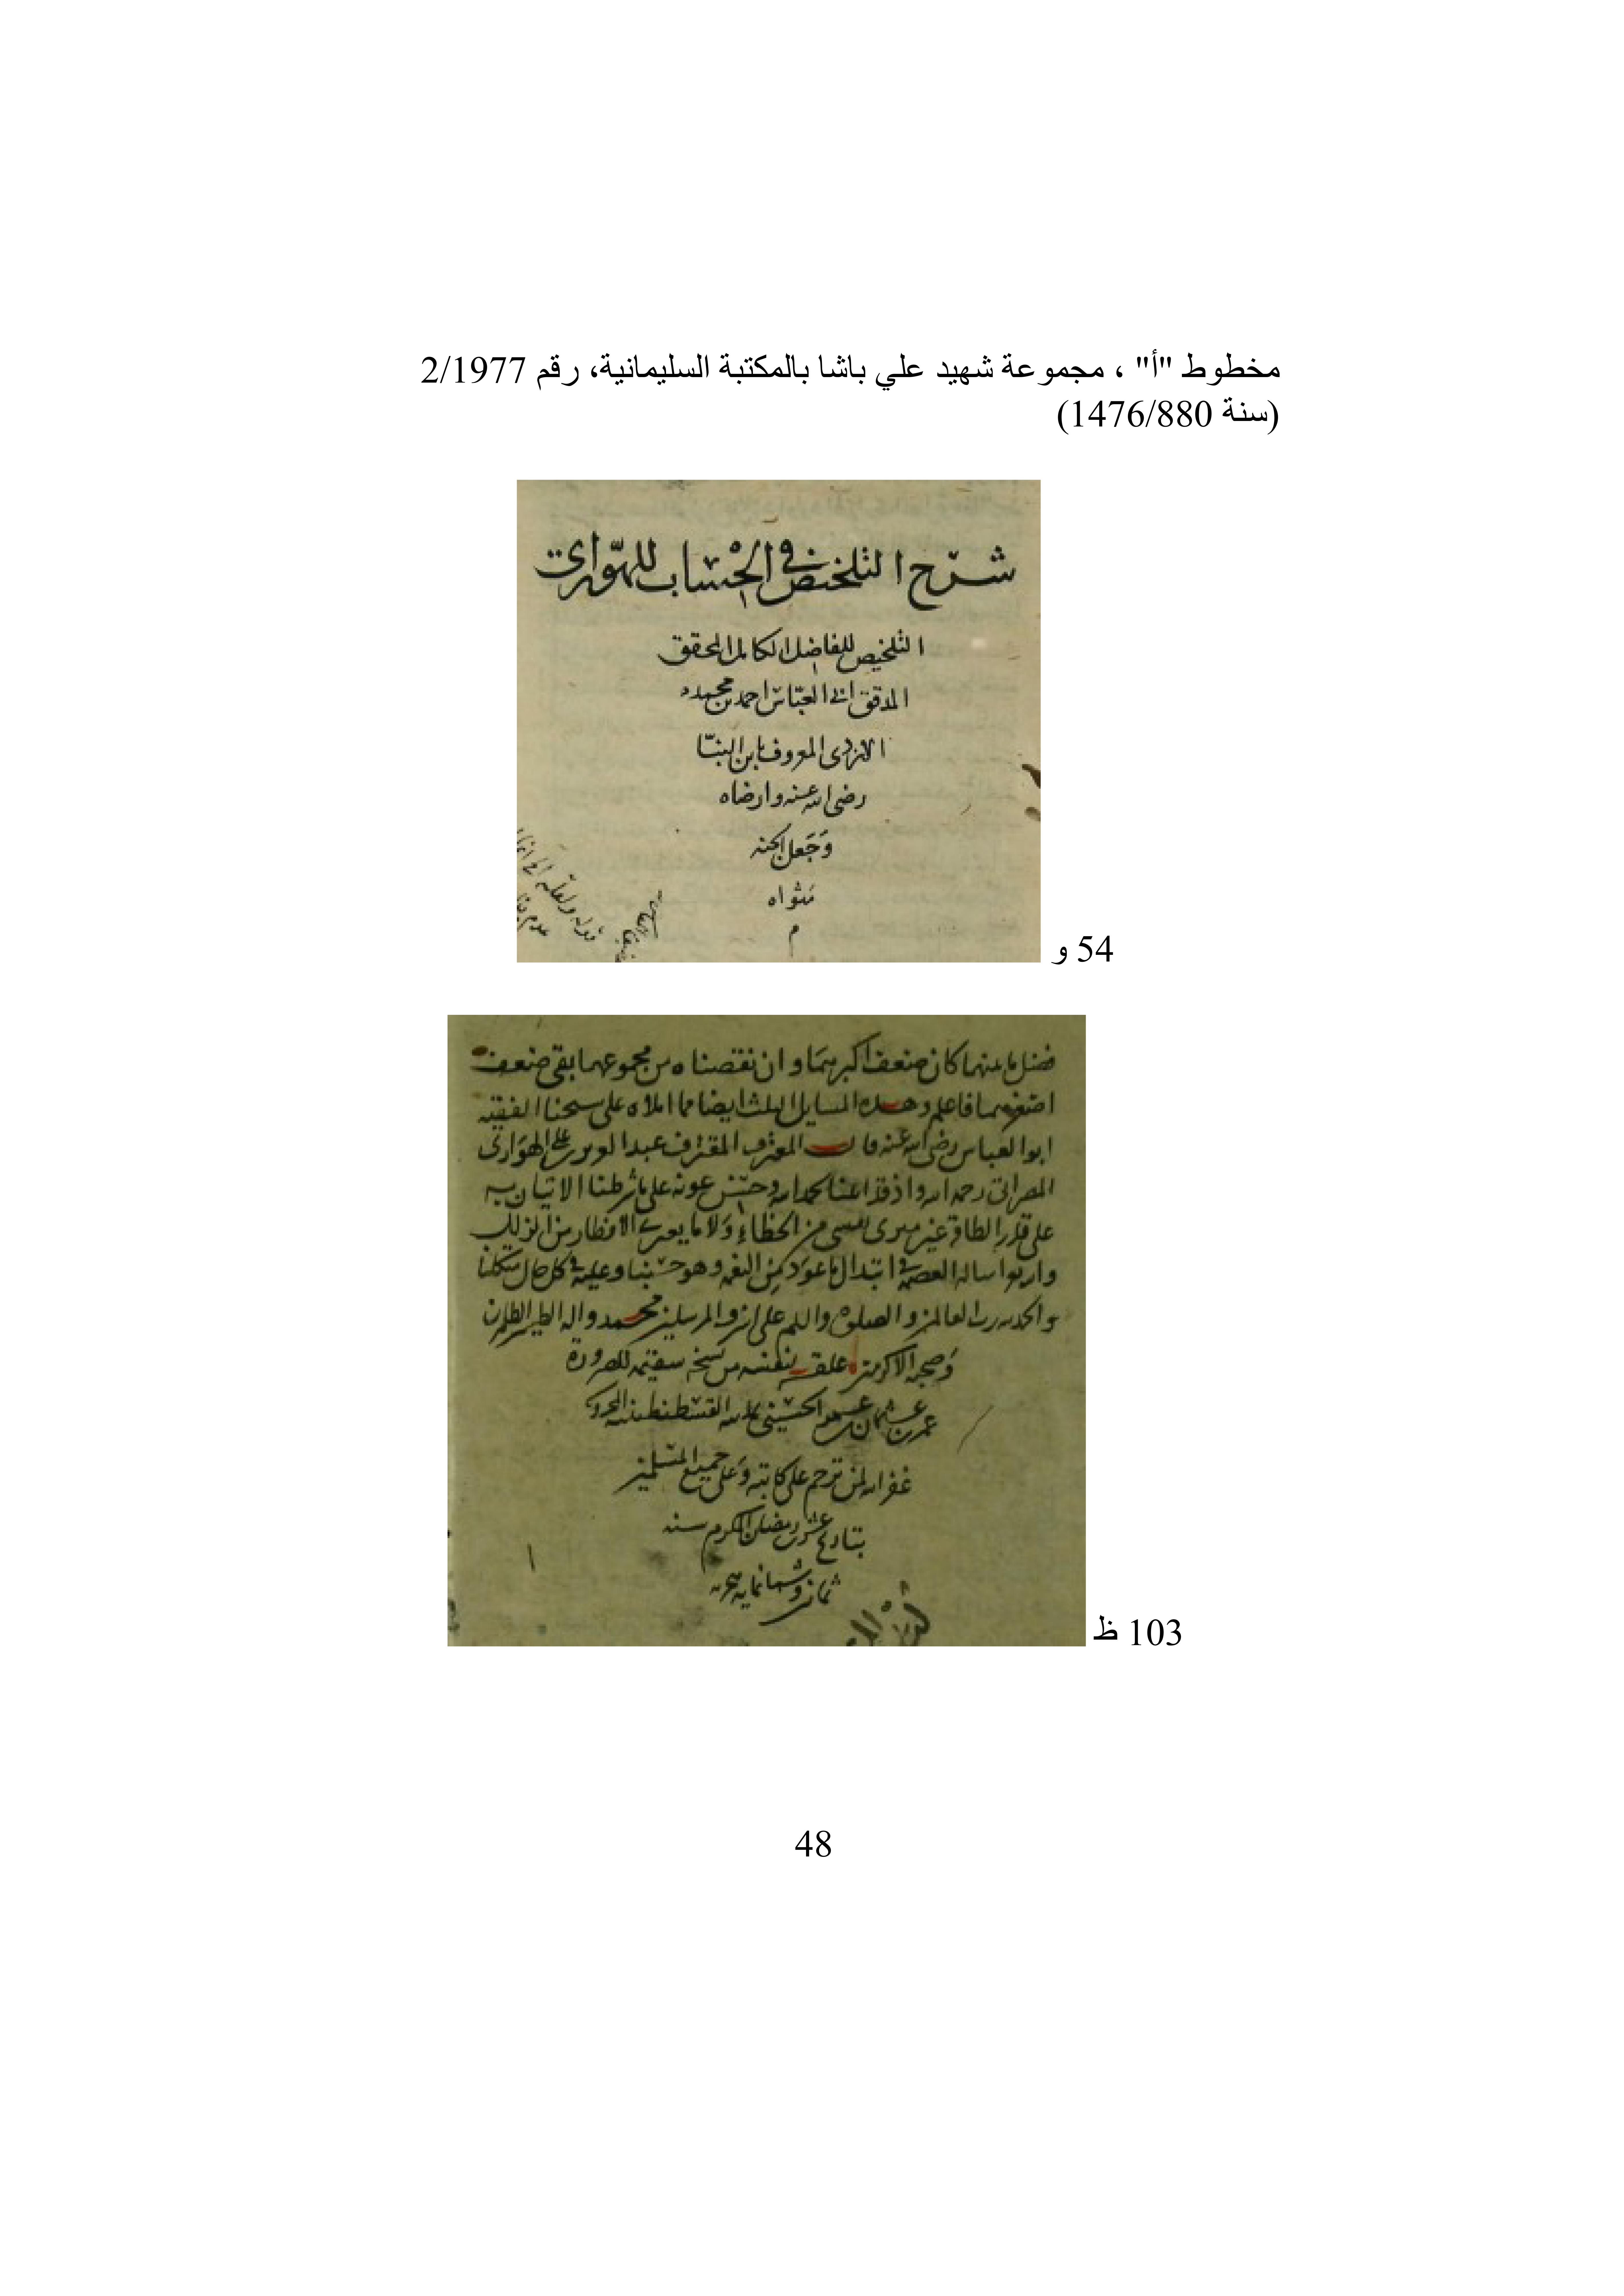 مخطوط "أ" ، مجموعة شهيد علي باشا بالمكتبة السليمانية، رقم 2/1977
(سنة 1476/880)
شرح التلخيص في الحساب للهواري
التلخيص للفاضل الكامل المحقق
المدقق ابي العباس احمد بن محمد
الازدي المعروف بابن البنا
رضى الله عنه وارضاه
وجعل الجنه
مثواه
م
54 و
فضل ما بينهما كان ضعف اكبرهما وان نقصناه من مجموعهما بقى ضعف
اصغرهما فاعلم وهذه المسايل الثلث ايضا مما املاه على شيخنا الفقيه
ابوا العباس رضى الله عنه قال المعترف المقترف عبد العزيز بن على الهوارى
المصراتى رحمه الله واذ قد اعلنا بحمد الله وحسن عونه على ما شرطنا الاتيان به
على قدر الطاقة غير مبرى نفسى من الخطاء ولا ما يعرى الافطار من الزلل
الله العصمة في ابتدال ما عود من النعم وهو حسبنا وعليه في كل حال متكلنا
والحمد لله رب العالمين والصلوة والسلم على اشرف المرسلين محمد واله الطيبين الطاهرين
وصحبه الاكرمين علقه لنفسه من نسخة سقيمه للضرورة
عمر بن عثمان الحسينى القسطنطينيه المحروسه
غفر الله لمن ترحم على كاتبه وعلى جميع المسلمين
بتاريخ رمضان المكرم سنه
ثمانين وثمانمايه هجريه
103 ظ
48